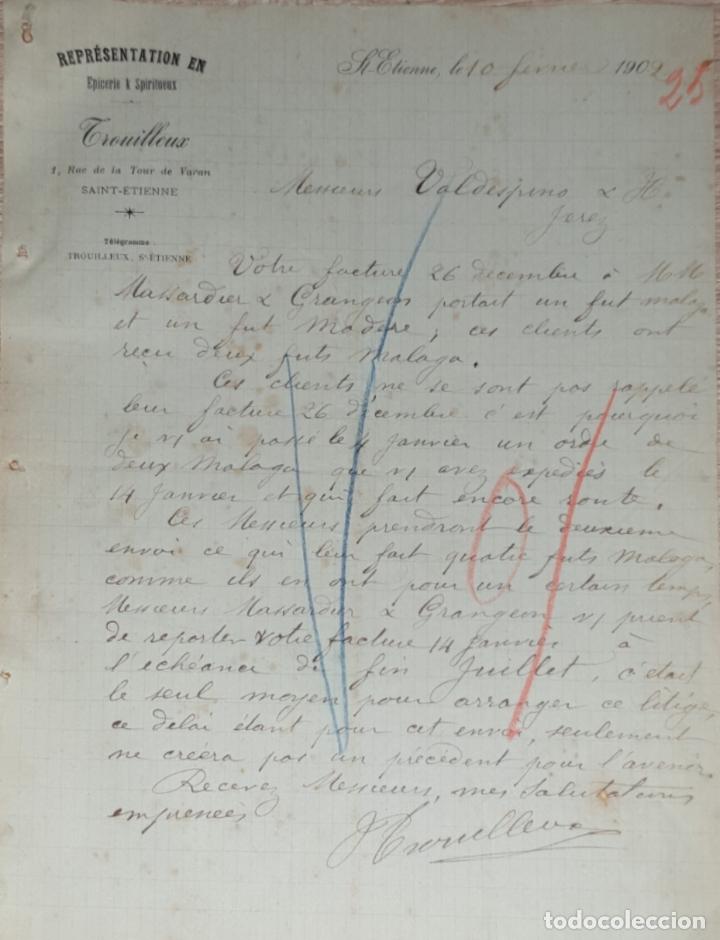 REPRÉSENTATION EN
Epicerie & Spiritueux
Trouilleux
1, Rue de la Tour de Varan
SAINT-ETIENNE
Télégramme
TROUILLEUX, ST-ÉTIENNE
St-Etienne, le 10 fevrier 1902
25
Messieurs Valdespino & H.
Jerez
Votre facture 26 decembre à MM
Massardier & Grangeon portait un fut malaga
et un fut Madère, ces clients ont
reçu deux futs Malaga.
Ces clients ne se sont pas rappelé
leur facture 26 décembre c'est pourquoi
je vs ai passé le 4 Janvier un ordre de
deux Malaga que vs avez expediés le
14 Janvier et qui fait encore route.
Ces Messieurs prendront le deuxième
envoi ce qui leur fait quatre futs Malaga,
comme ils en ont pour un certain temps,
Messieurs Massardier & Grangeon vs prient
de reporter votre facture 14 Janvier à
l'échéance de fin Juillet, c'était
le seul moyen pour arranger ce litige,
ce délai étant pour cet envoi, seulement
ne créera pas un précédent pour l'avenir.
Recevez Messieurs, mes salutations
empressées
JTrouilleux
todocoleccion.net